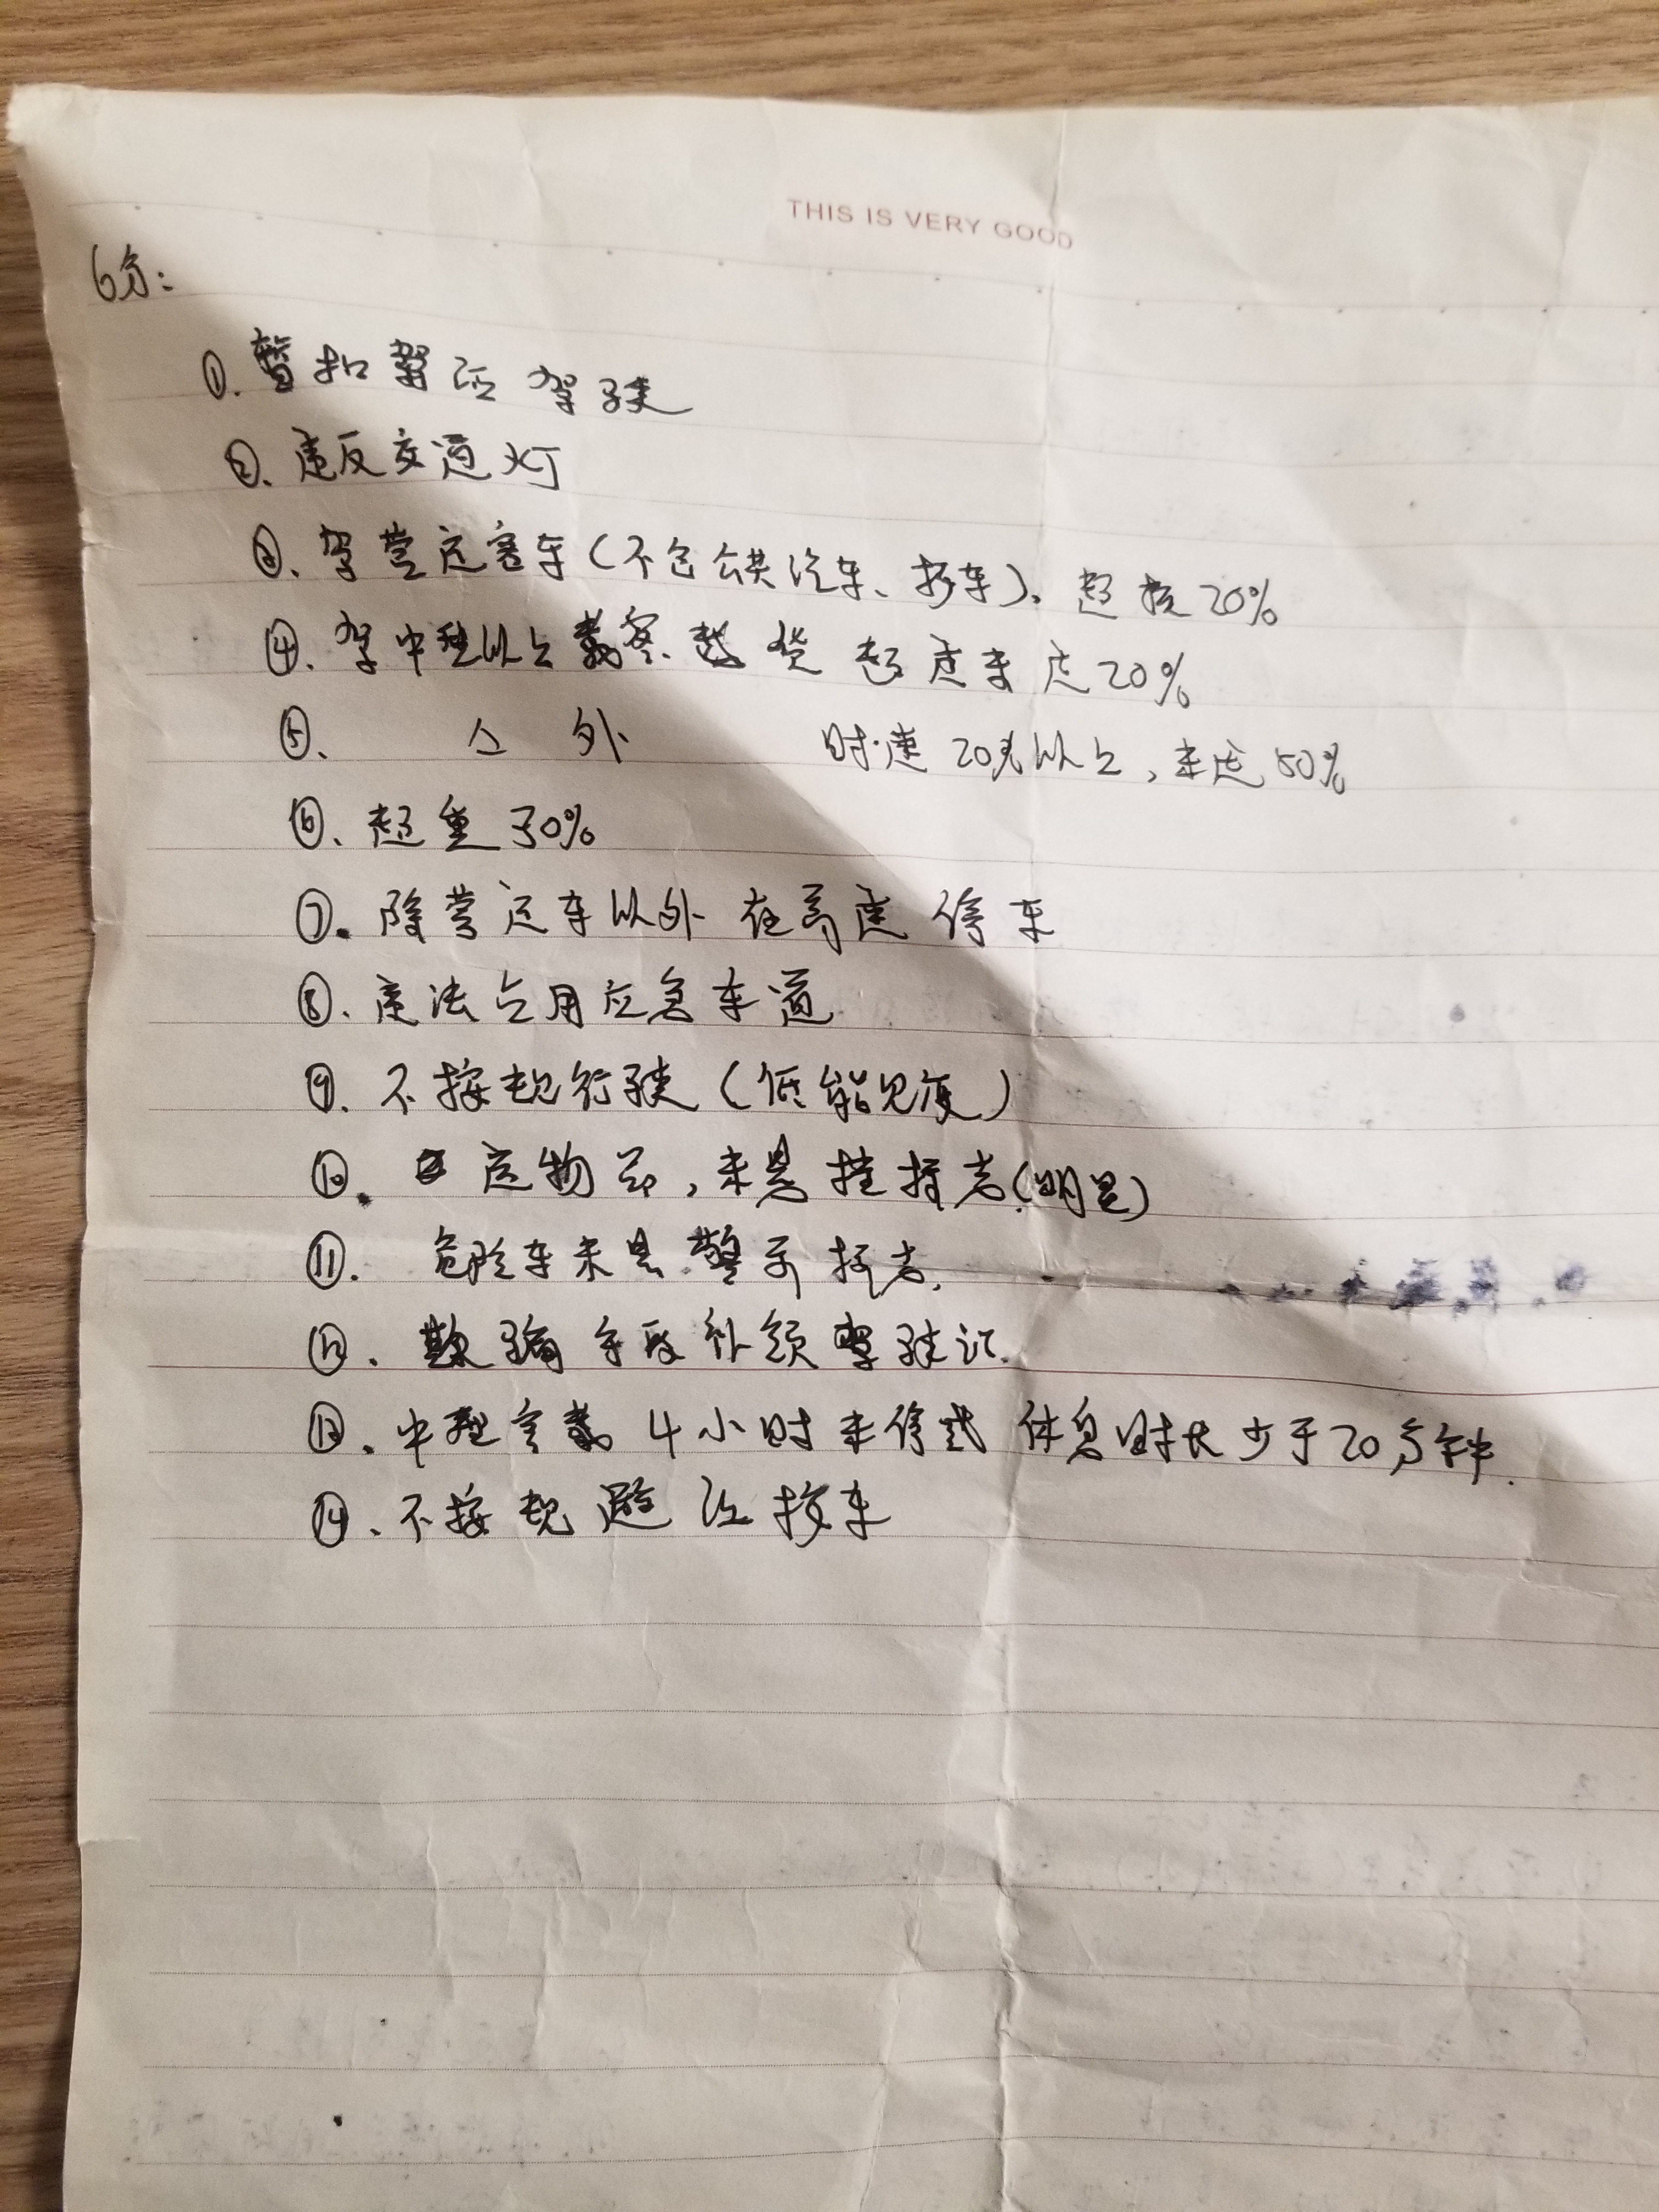 THIS IS VERY GOOD
6分:
①. 暂扣驾证驾驶
②. 违反交通灯
③. 驾营运客车(不包公共汽车、校车). 超核20%
④. 驾中型以上载客. 载货 超速未达20%
⑤. 以外 时速20%以上, 未达50%
⑥. 超重30%
⑦. 除营运车以外 在高速停车
⑧. 违法占用应急车道
⑨. 不按规行驶(低能见度)
⑩. 运物品, 未悬挂标志(明显)
⑪. 危险车未悬警示标志.
⑫. 欺骗手段补领驾驶证.
⑬. 中型客载 4小时未停或 休息时长少于20分钟.
⑭. 不按规避让校车